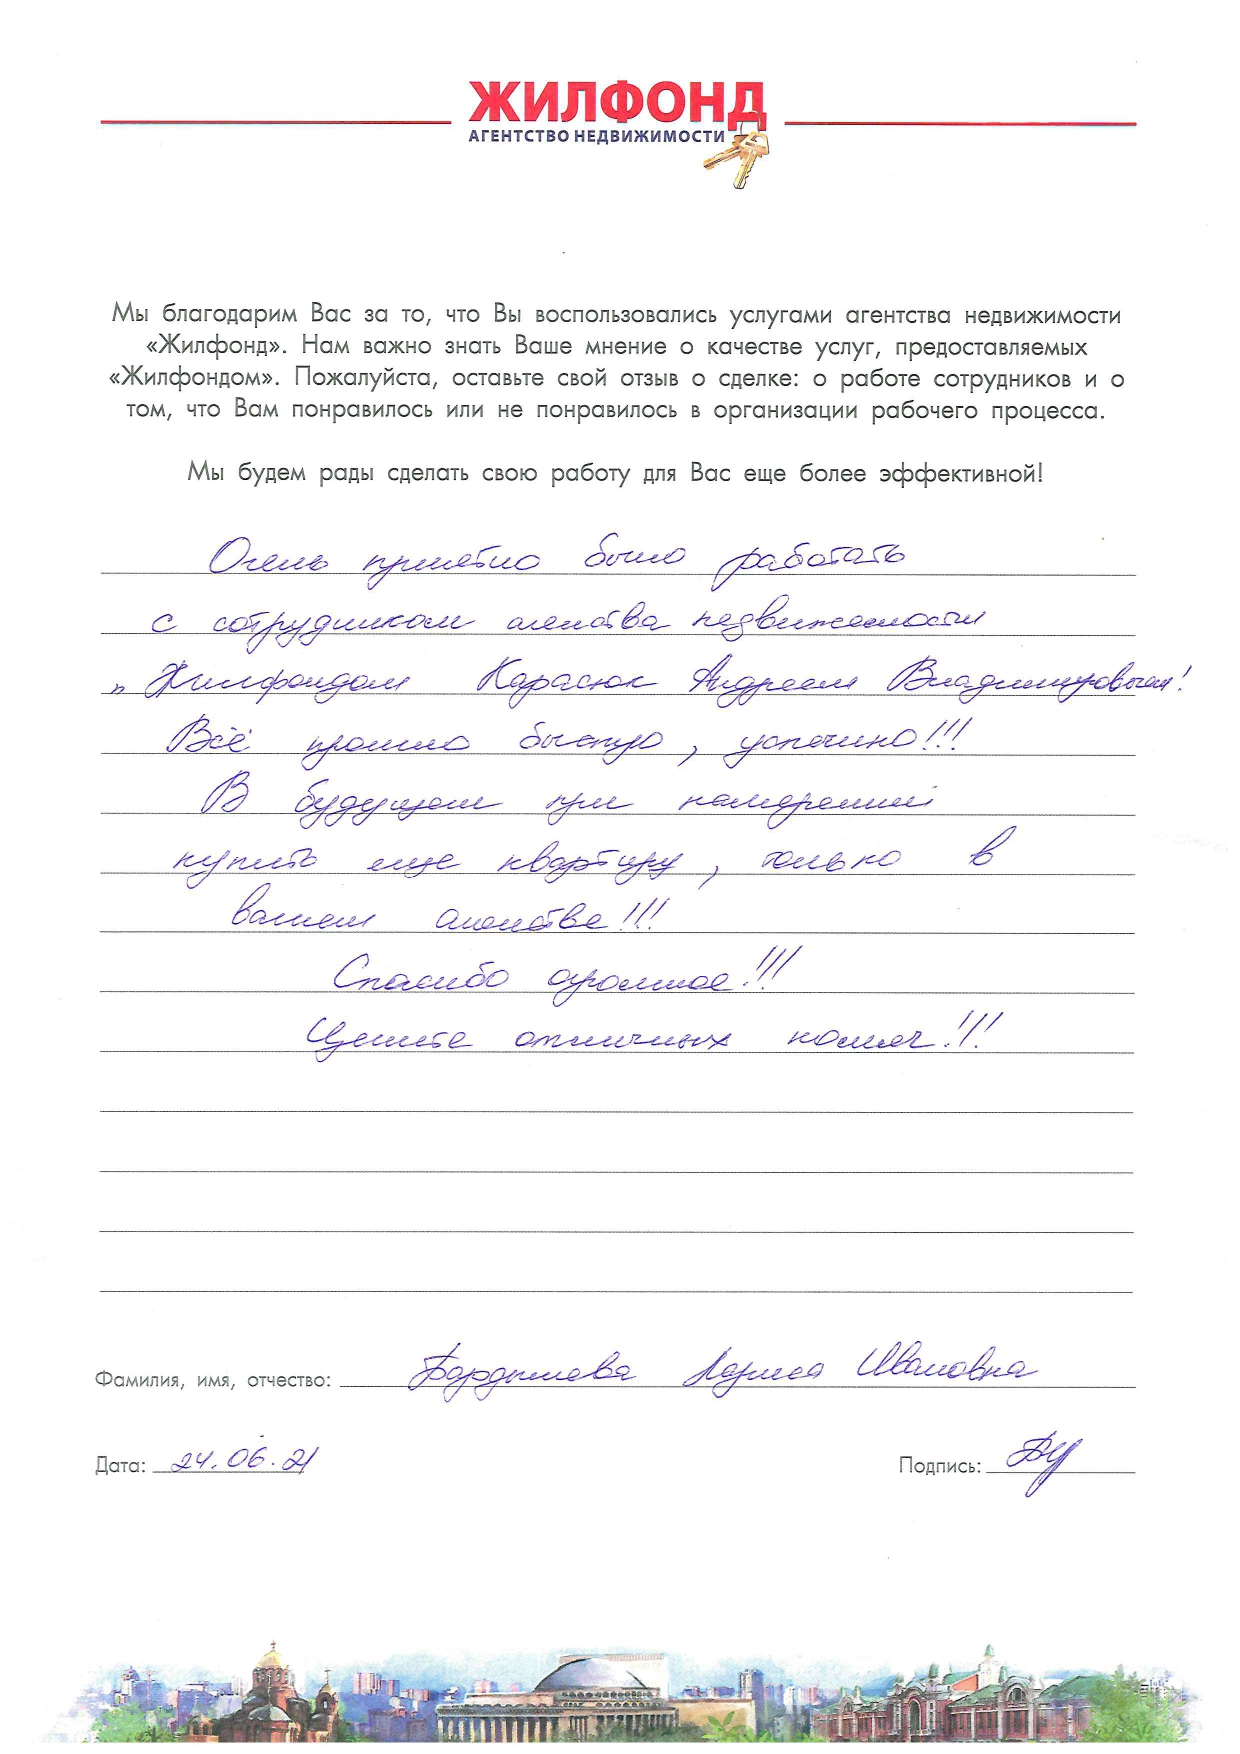 ЖИЛФОНД
АГЕНТСТВО НЕДВИЖИМОСТИ
Мы благодарим Вас за то, что Вы воспользовались услугами агентства недвижимости
«Жилфонд». Нам важно знать Ваше мнение о качестве услуг, предоставляемых
«Жилфондом». Пожалуйста, оставьте свой отзыв о сделке: о работе сотрудников и о
том, что Вам понравилось или не понравилось в организации рабочего процесса.
Мы будем рады сделать свою работу для Вас еще более эффективной!
Очень приятно было работать
с сотрудником агенства недвижемости
„Жилфондом Карасюк Андреем Владимировичем!
Всё прошло быстро, успешно!!!
В будущем при намерении
купить еще квартиру, только в
вашем агенстве!!!
Спасибо огромное!!!
Цените отличных команч!!!
Фамилия, имя, отчество: Лариса Ивановна
Дата: 24.06.21
Подпись: